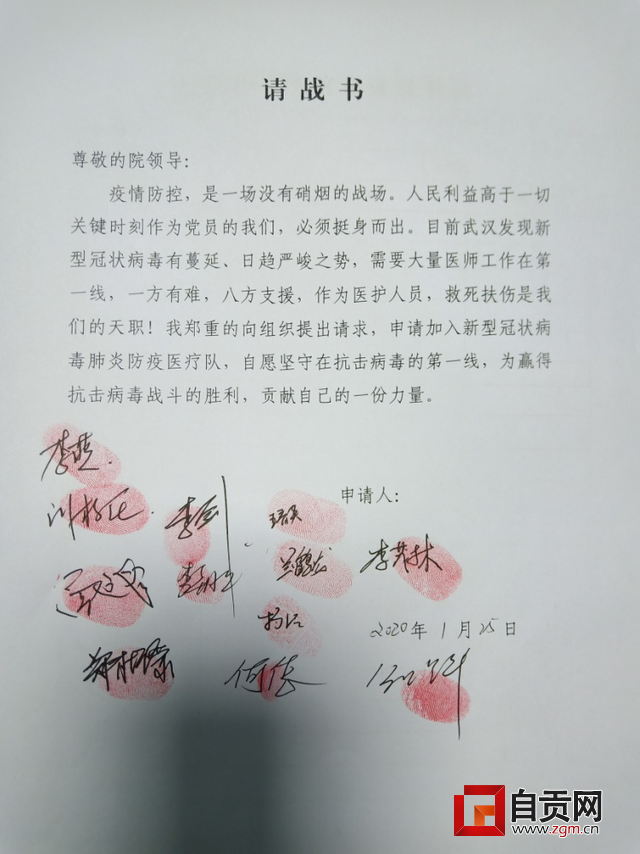 请战书
尊敬的院领导：
疫情防控，是一场没有硝烟的战场。人民利益高于一切
关键时刻作为党员的我们，必须挺身而出。目前武汉发现新
型冠状病毒有蔓延、日趋严峻之势，需要大量医师工作在第
一线，一方有难，八方支援，作为医护人员，救死扶伤是我
们的天职！我郑重的向组织提出请求，申请加入新型冠状病
毒肺炎防疫医疗队，自愿坚守在抗击病毒的第一线，为赢得
抗击病毒战斗的胜利，贡献自己的一份力量。
申请人：
2020年1月25日
自贡网
www.zgm.cn